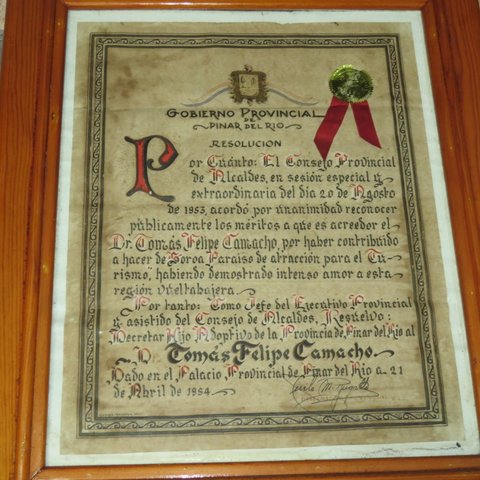 Gobierno Provincial
de
Pinar del Rio
Resolucion
Por Cuánto: El Consejo Provincial
de Alcaldes, en sesión especial y
extraordinaria del dia 20 de Agosto
de 1953, acordó por unanimidad reconocer
públicamente los méritos a que es acreedor el
Dr. Tomás Felipe Camacho, por haber contribuido
a hacer de Soroa "Paraiso de atracción para el Tu-
rismo", habiendo demostrado intenso amor a esta
región vueltabajera.
Por tanto: Como Jefe del Ejecutivo Provincial
y asistido del Consejo de Alcaldes, Resuelvo:
Decretar Hijo Adoptivo de la Provincia de Pinar del Rio al
D. Tomás Felipe Camacho
Dado en el Palacio Provincial de Pinar del Rio a 21
de Abril de 1954.